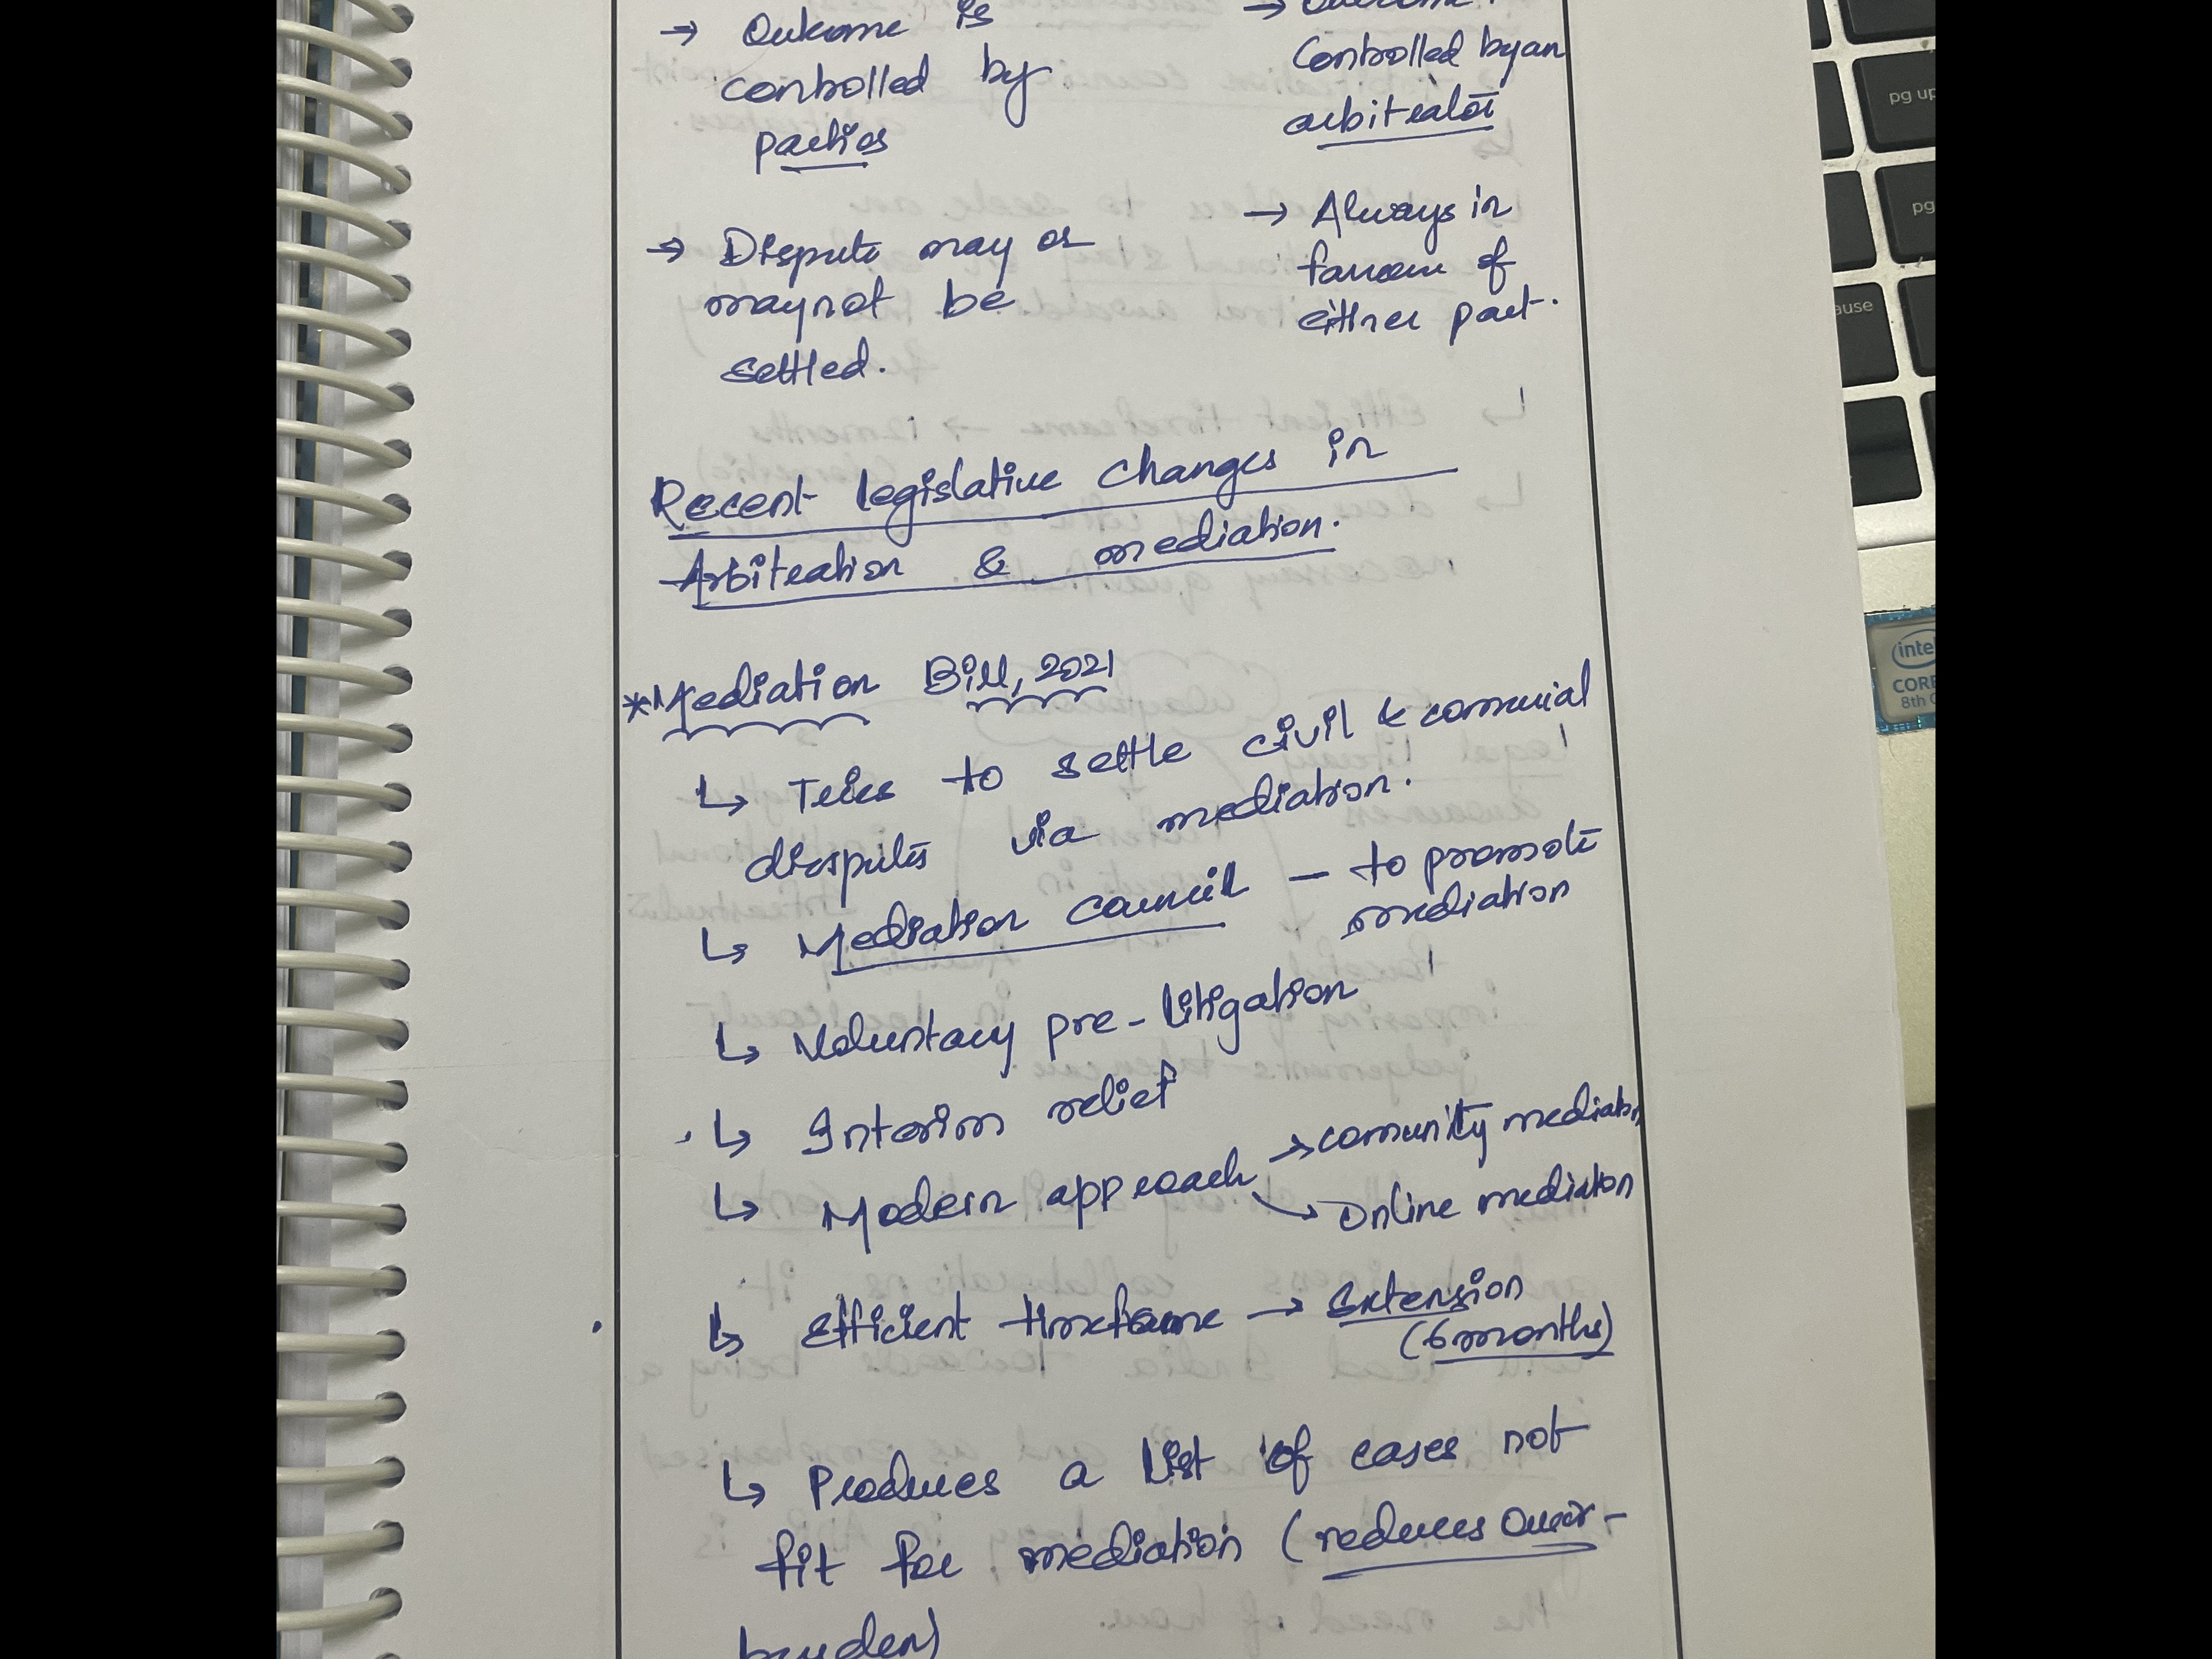 → Outcome is
controlled by
parties
→ Outcome is
Controlled by an
arbitrator
→ Dispute may or
may not be
settled.
→ Always in
favour of
either part.
Recent legislative changes in
Arbitration & mediation.
*Mediation Bill, 2021
↳ Tries to settle civil & commercial
disputes via mediation.
↳ Mediation Council – to promote
mediation
↳ Voluntary pre-litigation
↳ Interim relief
↳ Modern approach → comunity mediation
↘ Online mediation
↳ Efficient timeframe → Extension
(6 months)
↳ Produces a list of cases not
fit for mediation (reduces over-
burden)
pg up
pg
ause
intel
CORE
8th G